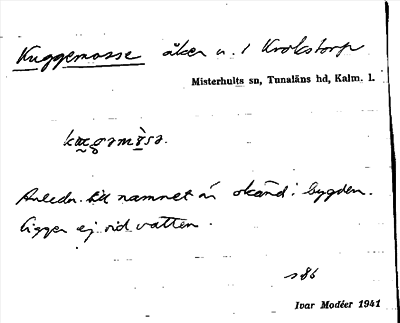 Kuggemosse åker n. 1 Krokstorp
Misterhults sn, Tunaläns hd, Kalm. l.
Anledn. till namnet är okänd i bygden.
Ligger ej vid vatten.
s 86
Ivar Modéer 1941